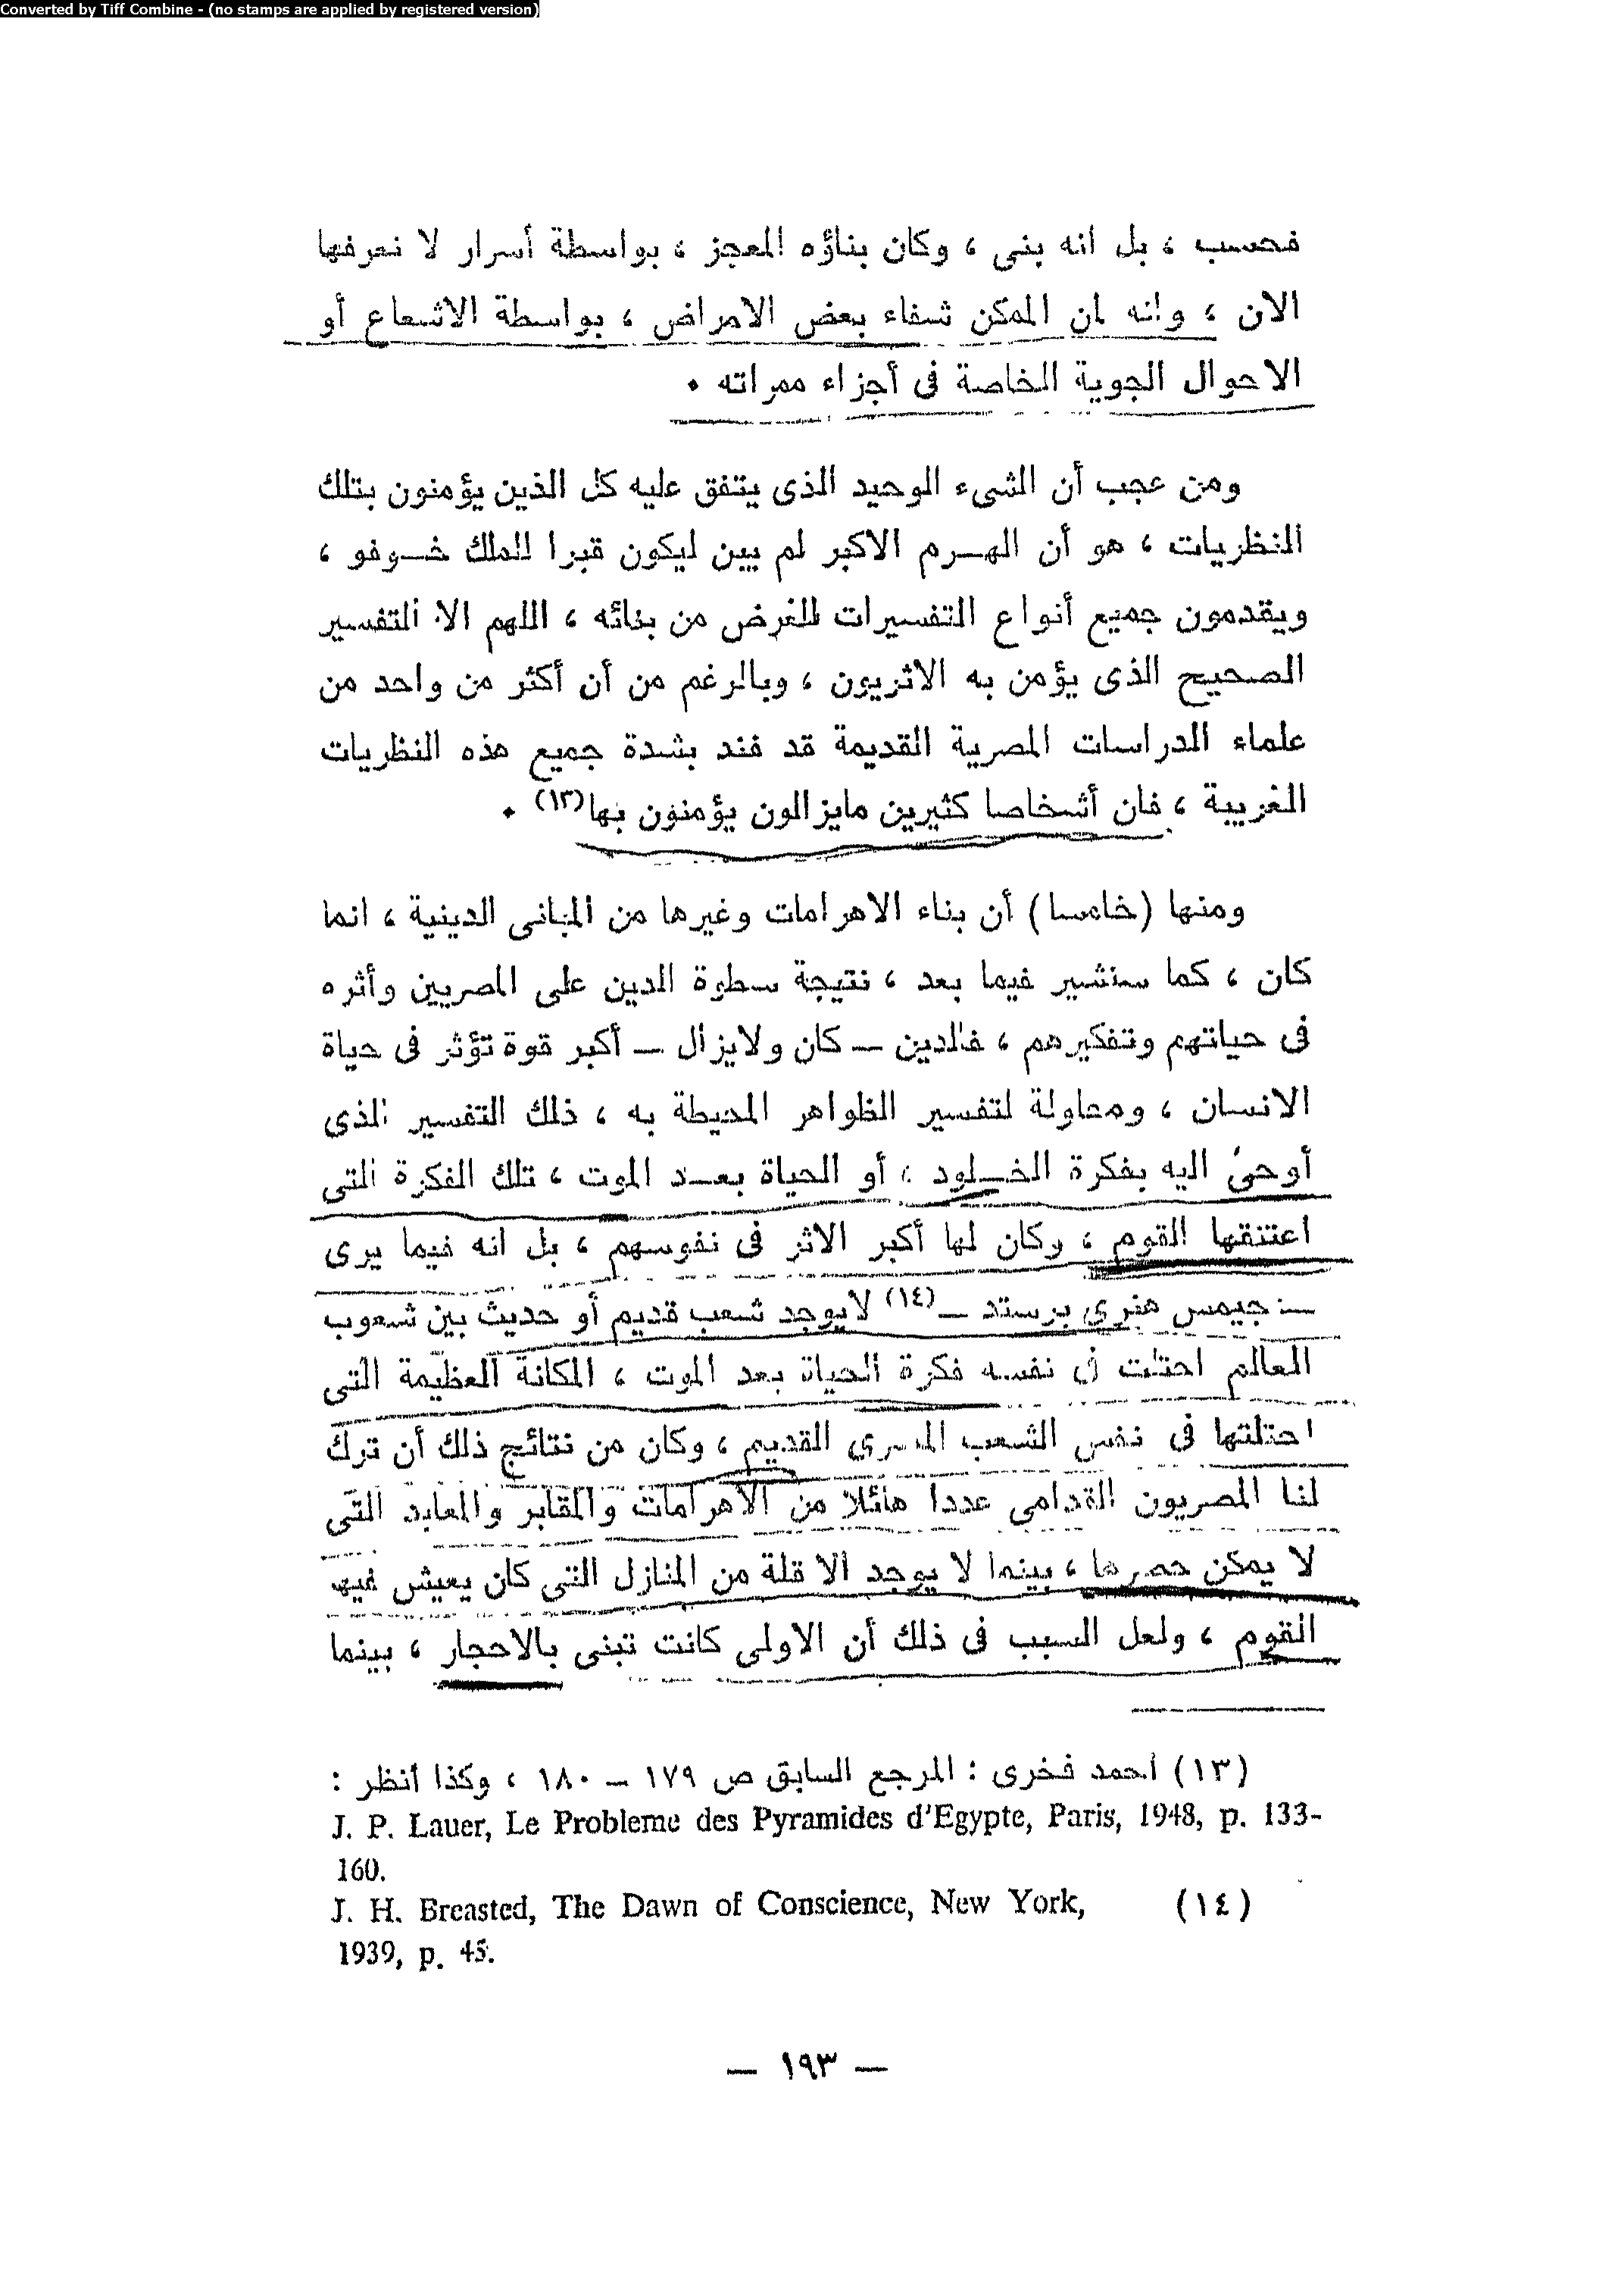 Converted by Tiff Combine - (no stamps are applied by registered version)
فحسب ، بل انه بنى ، وكان بناؤه المعجز ، بواسطة أسرار لا نعرفها
الان ، وانه لمن الممكن شفاء بعض الامراض ، بواسطة الاشعاع أو
الاحوال الجوية الخاصة فى أجزاء ممراته .
ومن عجب أن الشىء الوحيد الذى يتفق عليه كل الذين يؤمنون بتلك
النظريات ، هو أن الهـرم الاكبر لم يبن ليكون قبرا للملك خـوفو ،
ويقدمون جميع أنواع التفسيرات للغرض من بنائه ، اللهم الا التفسير
الصحيح الذى يؤمن به الاثريون ، وبالرغم من أن أكثر من واحد من
علماء الدراسات المصرية القديمة قد فند بشدة جميع هذه النظريات
الغريبة ، فان أشخاصا كثيرين مايزالون يؤمنون بها(١٣) .
ومنها (خامسا) أن بناء الاهرامات وغيرها من المبانى الدينية ، انما
كان ، كما سنشير فيما بعد ، نتيجة سطوة الدين على المصريين وأثره
فى حياتهم وتفكيرهم ، فالدين – كان ولايزال – أكبر قوة تؤثر فى حياة
الانسان ، ومحاولة لتفسير الظواهر المحيطة به ، ذلك التفسير الذى
أوحى اليه بفكرة الخـلود ، أو الحياة بعـد الموت ، تلك الفكرة التى
اعتنقها القوم ، وكان لها أكبر الاثر فى نفوسهم ، بل انه فيما يرى
– جيمس هنرى برستد –(١٤) لايوجد شعب قديم أو حديث بين شعوب
العالم احتلت فى نفسه فكرة الحياة بعد الموت ، المكانة العظيمة التى
احتلتها فى نفس الشعب المصرى القديم ، وكان من نتائج ذلك أن ترك
لنا المصريون القدامى عددا هائلا من الاهرامات والمقابر والمعابد التى
لا يمكن حصرها ، بينما لا يوجد الا قلة من المنازل التى كان يعيش فيها
القوم ، ولعل السبب فى ذلك أن الاولى كانت تبنى بالاحجار ، بينما
(١٣) أحمد فخرى : المرجع السابق ص ١٧٩ – ١٨٠ ، وكذا أنظر :
J. P. Lauer, Le Probleme des Pyramides d'Egypte, Paris, 1948, p. 133-
160.
J. H. Breasted, The Dawn of Conscience, New York, (١٤)
1939, p. 45.
– ١٩٣ –